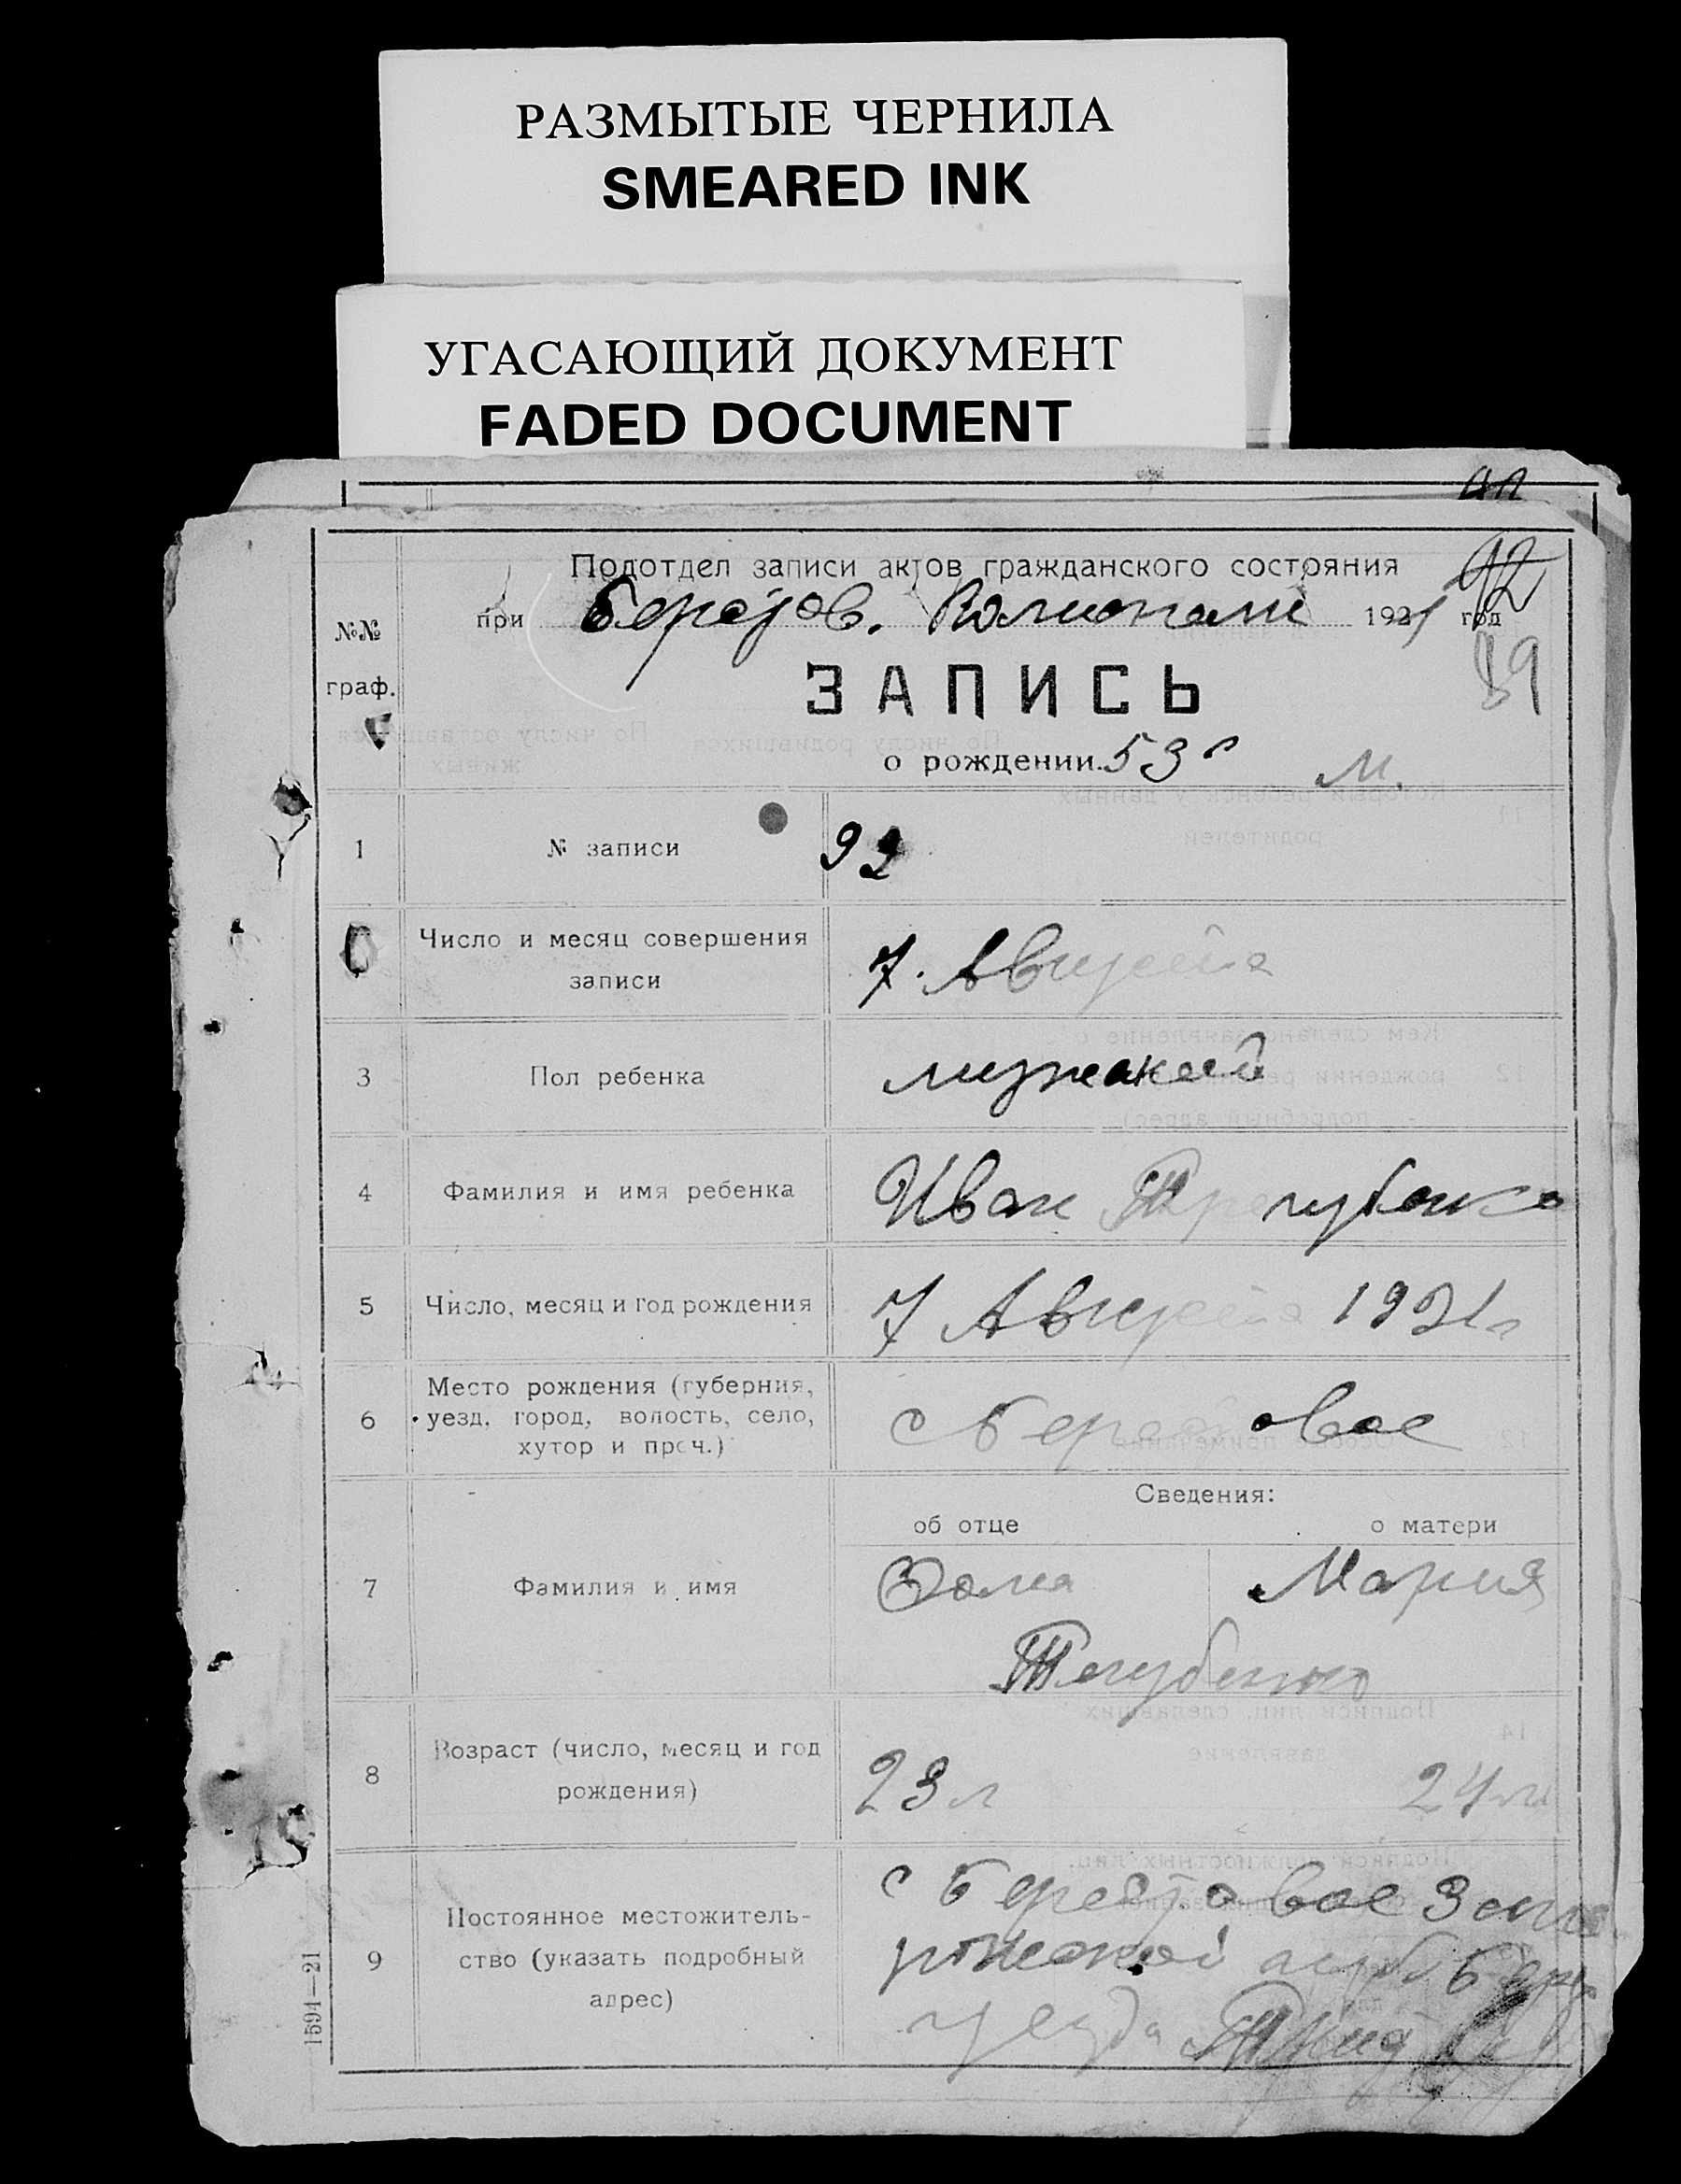 РАЗМЫТЫЕ ЧЕРНИЛА
SMEARED INK
УГАСАЮЩИЙ ДОКУМЕНТ
FADED DOCUMENT
92
Подотдел записи актов гражданского состояния
при 1921 год
89
№№
граф.
ЗАПИСЬ
о рождении. 53 м.
1 № записи 92
Число и месяц совершения
записи
7. Августа
3 Пол ребенка мужской
4 Фамилия и имя ребенка Иван Трегубенко
5 Число, месяц и год рождения 7 Августа 1921 г
6 Место рождения (губерния,
уезд, город, волость, село,
хутор и проч.)
с Берестовое
Сведения:
об отце о матери
7 Фамилия и имя Фома Мария
Тегубенко
8 Возраст (число, месяц и год
рождения)
23 л 24 л
9 Постоянное местожитель-
ство (указать подробный
адрес)
с Берестовое Запо
рожской губ Берд
уезда
1591—21